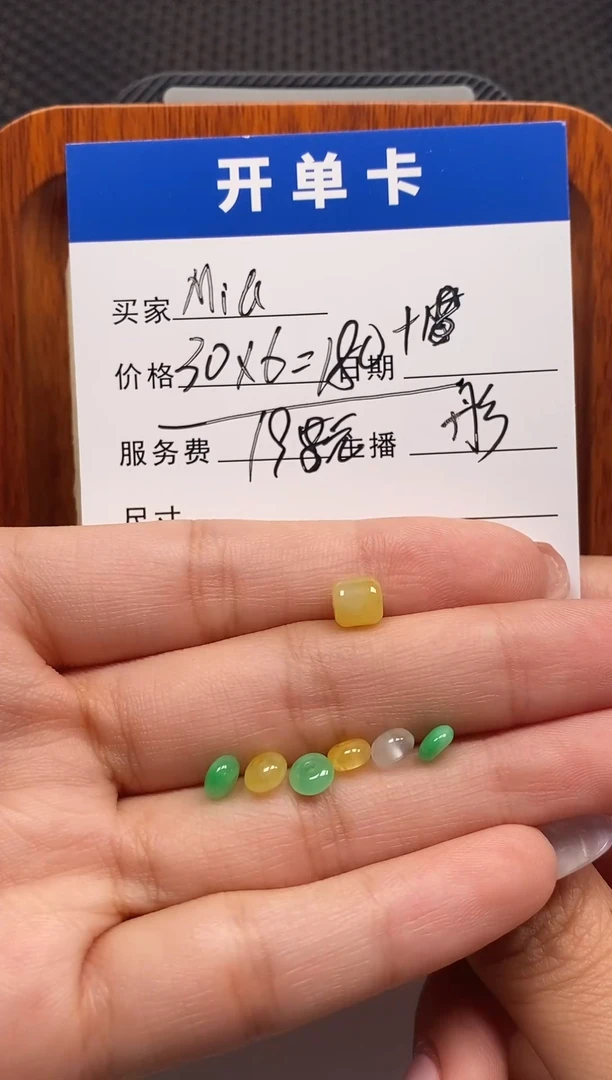 开单卡
买家 Mia
价格 30×6=180 日期 +
服务费 198元 主播 彤
尺寸